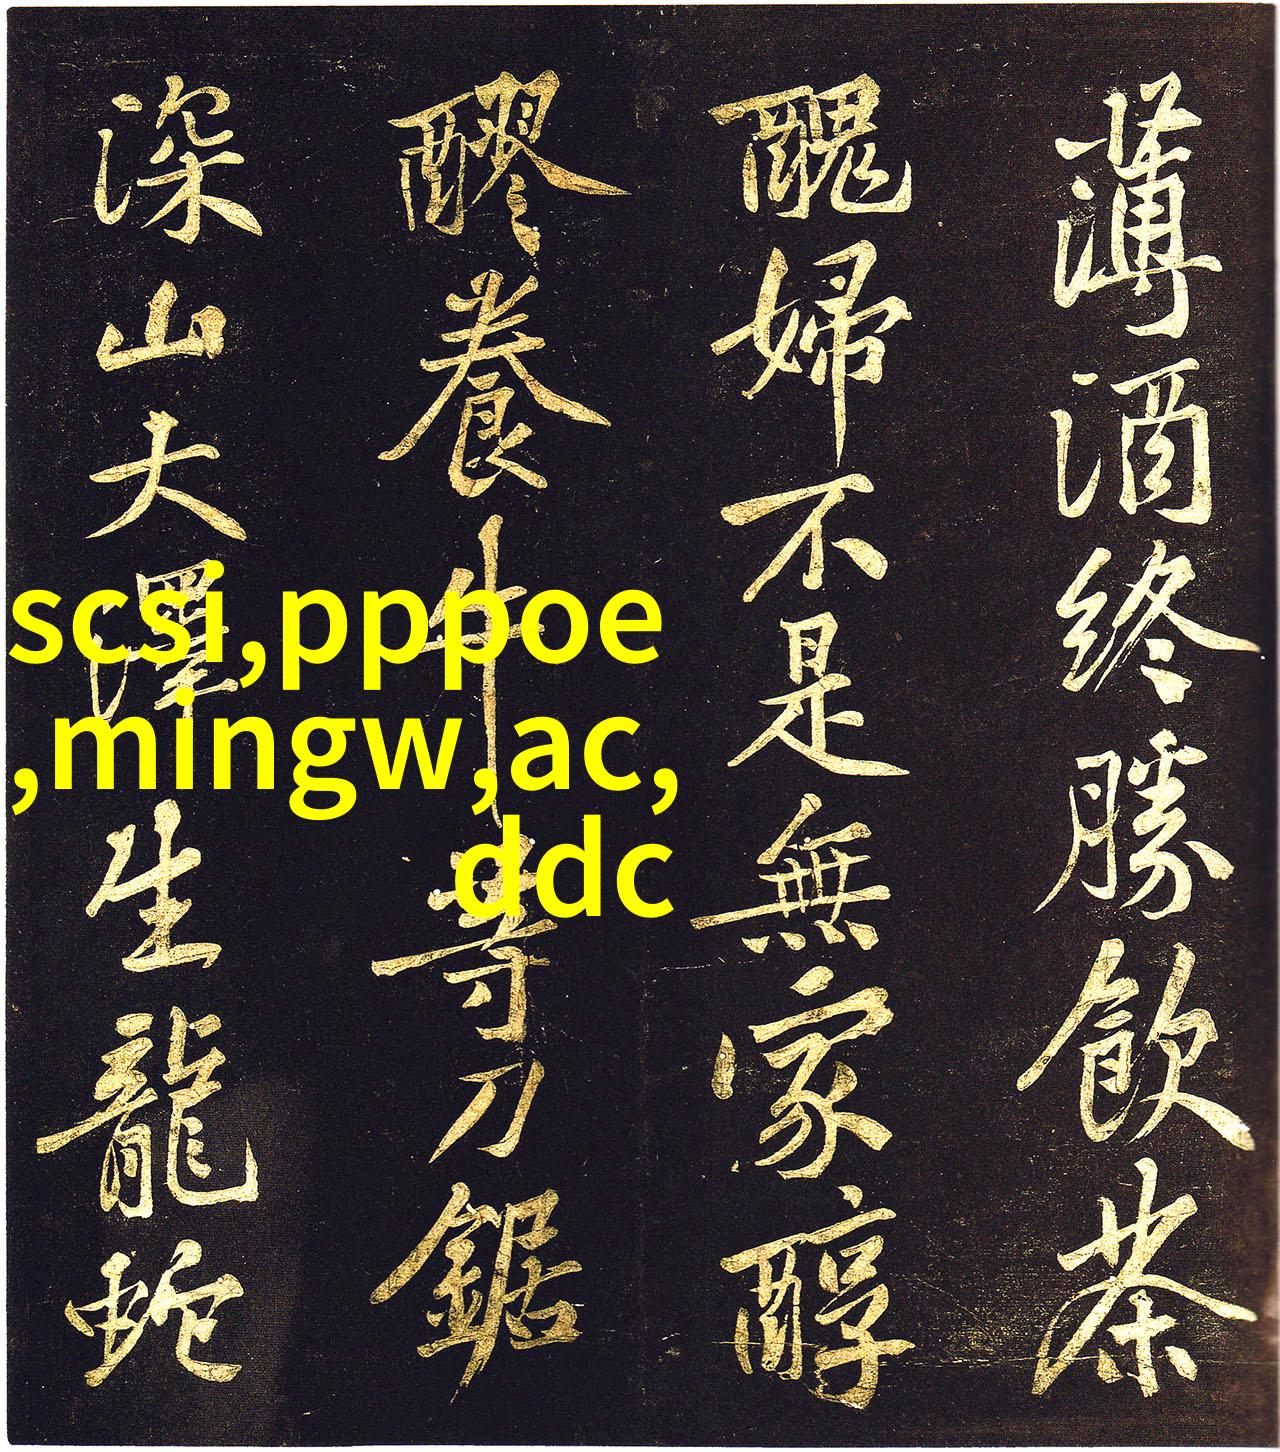 薄酒終勝飲茶
醜婦不是無家醇
醪養牛等刀鋸
深山大澤生龍蛇
scsi,pppoe
,mingw,ac,
ddc